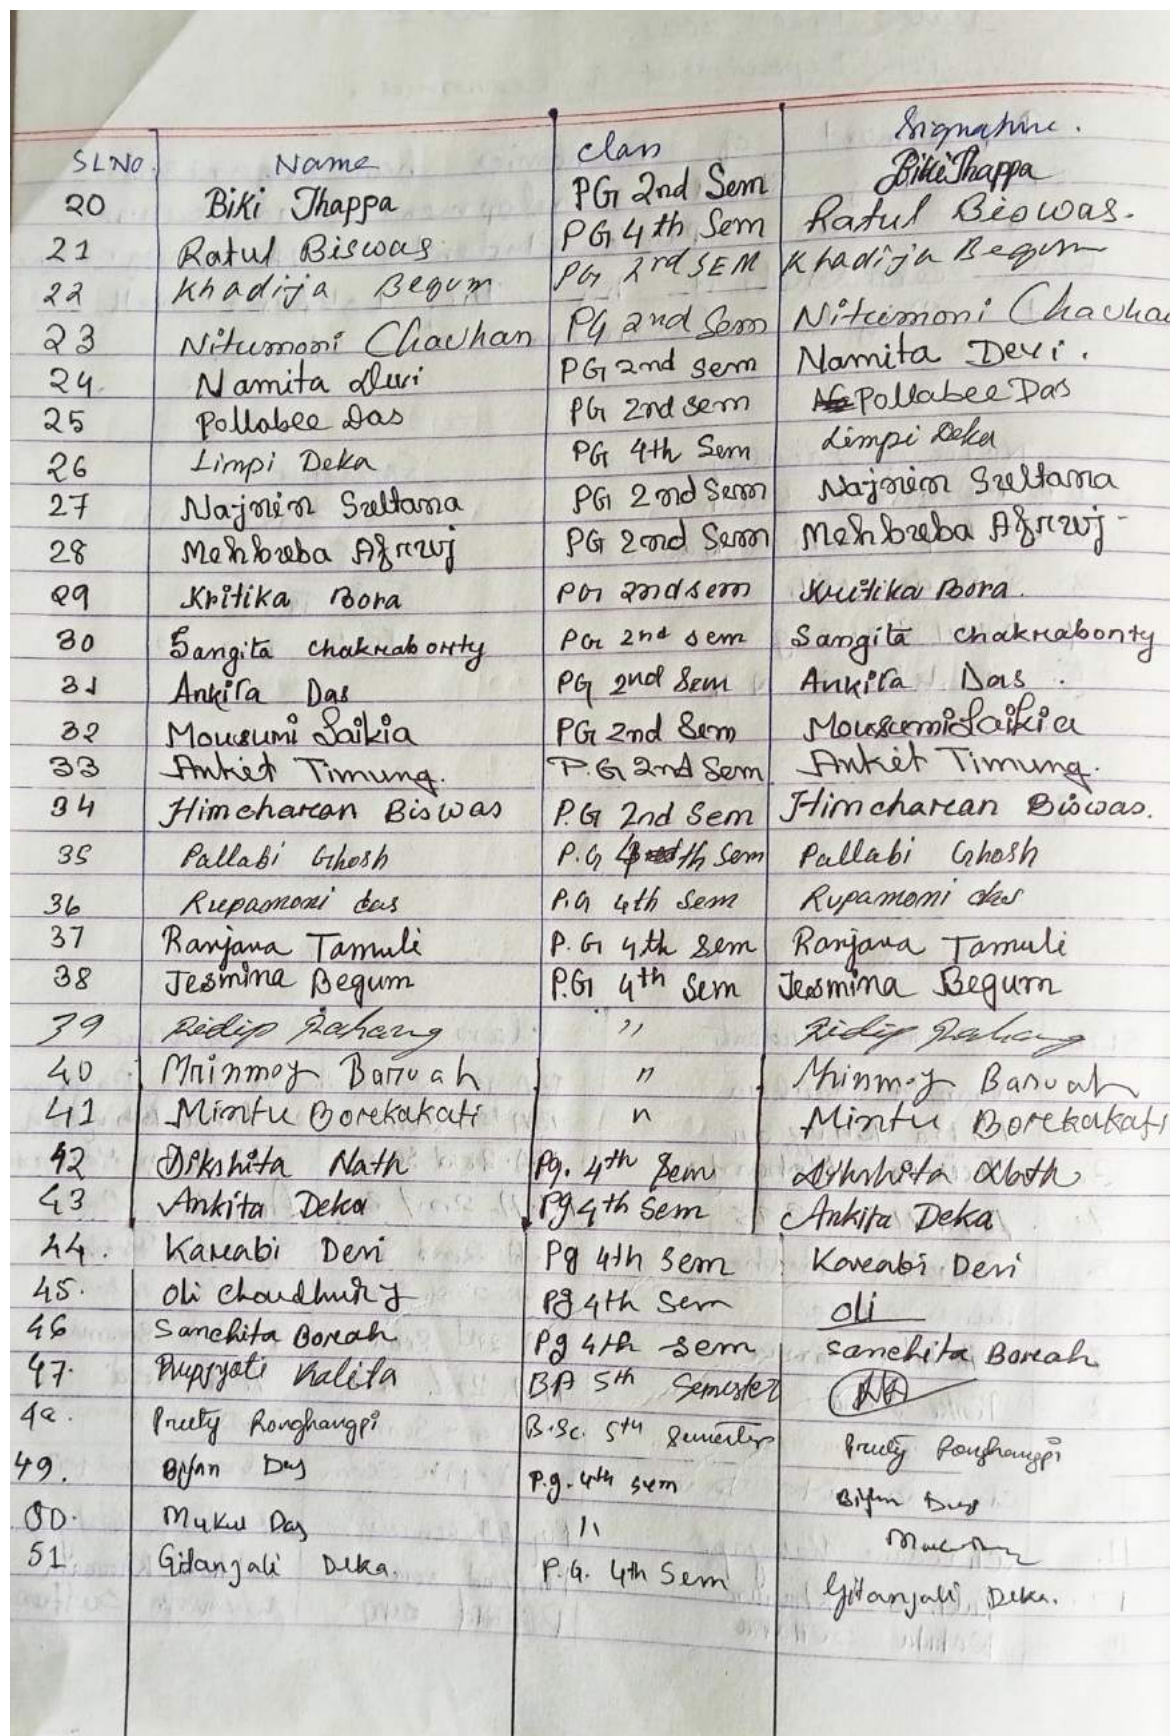 SL NO. Name Class Signature.
20 Biki Thappa PG 2nd Sem Biki Thappa
21 Ratul Biswas PG 4th Sem Ratul Biswas.
22 Khadija Begum PG 2rd SEM Khadija Begum
23 Nitumoni Chauhan PG 2nd Sem Nitumoni Chauha
24 Namita Devi PG 2nd sem Namita Devi.
25 Pollabee Das PG 2nd sem Pollabee Das
26 Limpi Deka PG 4th Sem Limpi Deka
27 Najmin Sultana PG 2nd Sem Najmin Sultana
28 Mehbuba Afruj PG 2nd Sem Mehbuba Afruj
29 Kritika Bora PG 2nd sem Kritika Bora.
30 Sangita Chakraborty PG 2nd sem Sangita Chakraborty
31 Ankita Das PG 2nd Sem Ankita Das.
32 Mousumi Saikia PG 2nd Sem Mousumi Saikia
33 Ankit Timung. P.G 2nd Sem Ankit Timung.
34 Himcharan Biswas P.G 2nd Sem Himcharan Biswas.
35 Pallabi Ghosh P.G 4th Sem Pallabi Ghosh
36 Rupamoni das P.G 4th Sem Rupamoni das
37 Ranjana Tamuli P.G 4th Sem Ranjana Tamuli
38 Jesmina Begum P.G 4th Sem Jesmina Begum
39 "
40 Mrinmoy Baruah " Mrinmoy Baruah
41 Mintu Borekakati " Mintu Borekakati
42 Dikshita Nath Pg. 4th Sem Dikshita Nath
43 Ankita Deka Pg 4th Sem Ankita Deka
44. Karabi Devi Pg 4th Sem Karabi Devi
45. Oli Choudhury Pg 4th Sem Oli
46 Sanchita Borah Pg 4th Sem Sanchita Borah
47. Rupjyoti Kalita BA 5th Semester
48. Preety Ronghangpi B.Sc. 5th Semester Preety Ronghangpi
49. Das P.g. 4th sem
50. Mukul Das "
51 Gitanjali Deka. P.G. 4th Sem Gitanjali Deka.